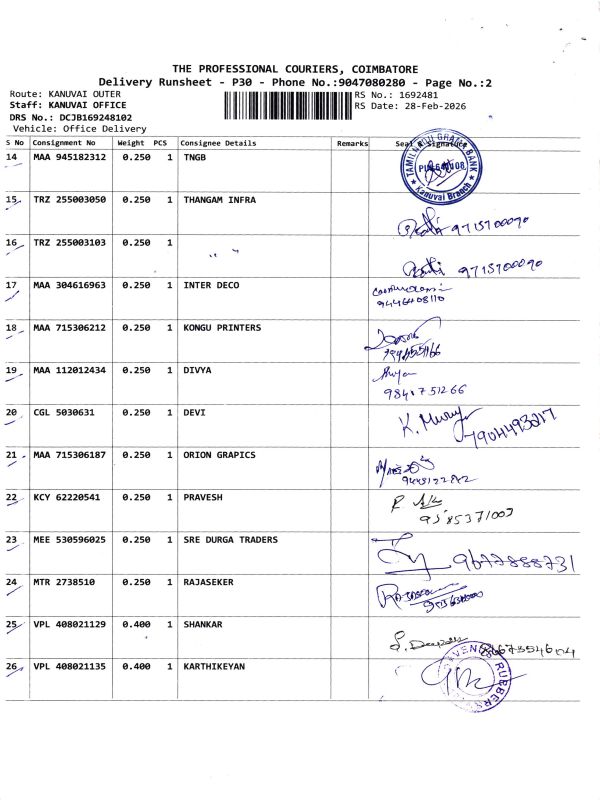 THE PROFESSIONAL COURIERS, COIMBATORE
Delivery Runsheet - P30 - Phone No.:9047080280 - Page No.:2
Route: KANUVAI OUTER RS No.: 1692481
Staff: KANUVAI OFFICE RS Date: 28-Feb-2026
DRS No.: DCJB169248102
Vehicle: Office Delivery
S No Consignment No Weight PCS Consignee Details Remarks Seal & Signature
14 MAA 945182312 0.250 1 TNGB
TAMILNADU GRAMA BANK
Kanuvai Branch
15 TRZ 255003050 0.250 1 THANGAM INFRA
9715700090
16 TRZ 255003103 0.250 1 " "
9715700090
17 MAA 304616963 0.250 1 INTER DECO
9446408110
18 MAA 715306212 0.250 1 KONGU PRINTERS
19 MAA 112012434 0.250 1 DIVYA
9840751266
20 CGL 5030631 0.250 1 DEVI
K. 7904493217
21 MAA 715306187 0.250 1 ORION GRAPICS
22 KCY 62220541 0.250 1 PRAVESH
9585371003
23 MEE 530596025 0.250 1 SRE DURGA TRADERS
9677888731
24 MTR 2738510 0.250 1 RAJASEKER
25 VPL 408021129 0.400 1 SHANKAR
26 VPL 408021135 0.400 1 KARTHIKEYAN
RUBBERS